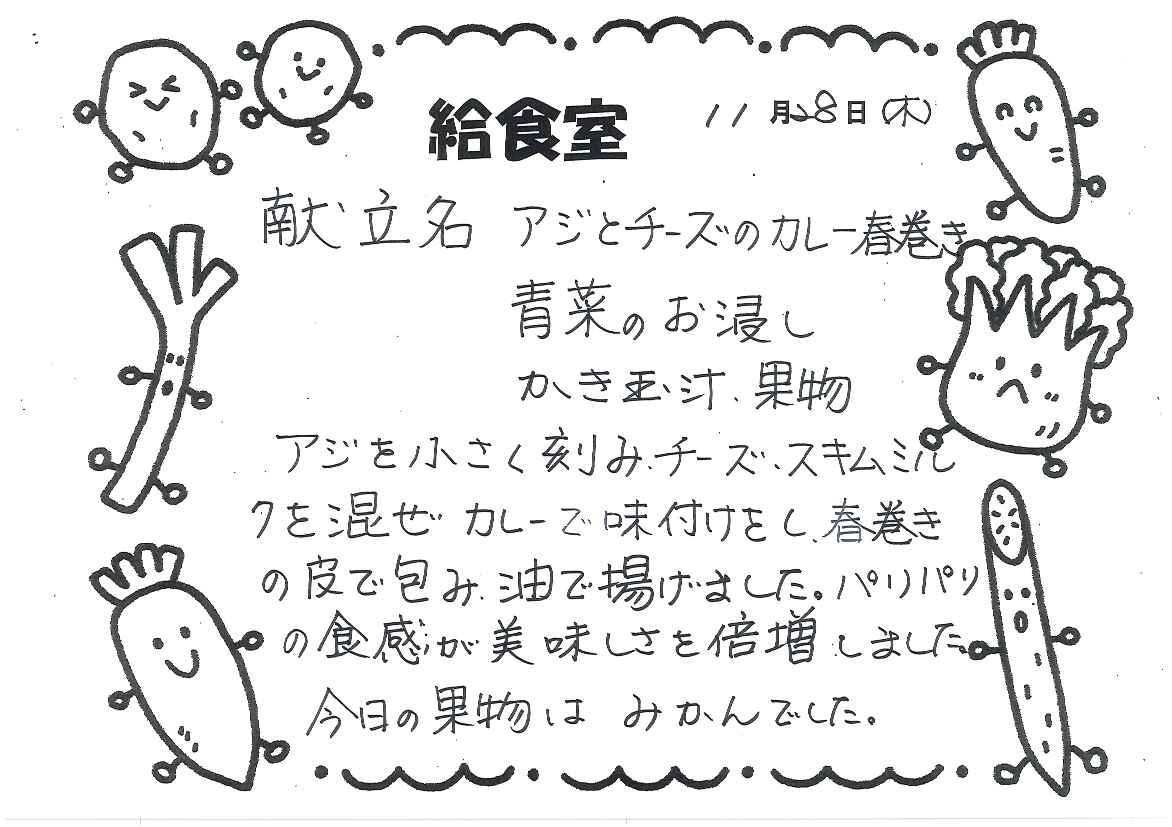 給食室 11月28日(木)
献立名 アジとチーズのカレー春巻き
青菜のお浸し
かき玉汁、果物
アジを小さく刻み、チーズ、スキムミル
クを混ぜカレーで味付けをし、春巻き
の皮で包み、油で揚げました。パリパリ
の食感が美味しさを倍増しました。
今日の果物は みかんでした。